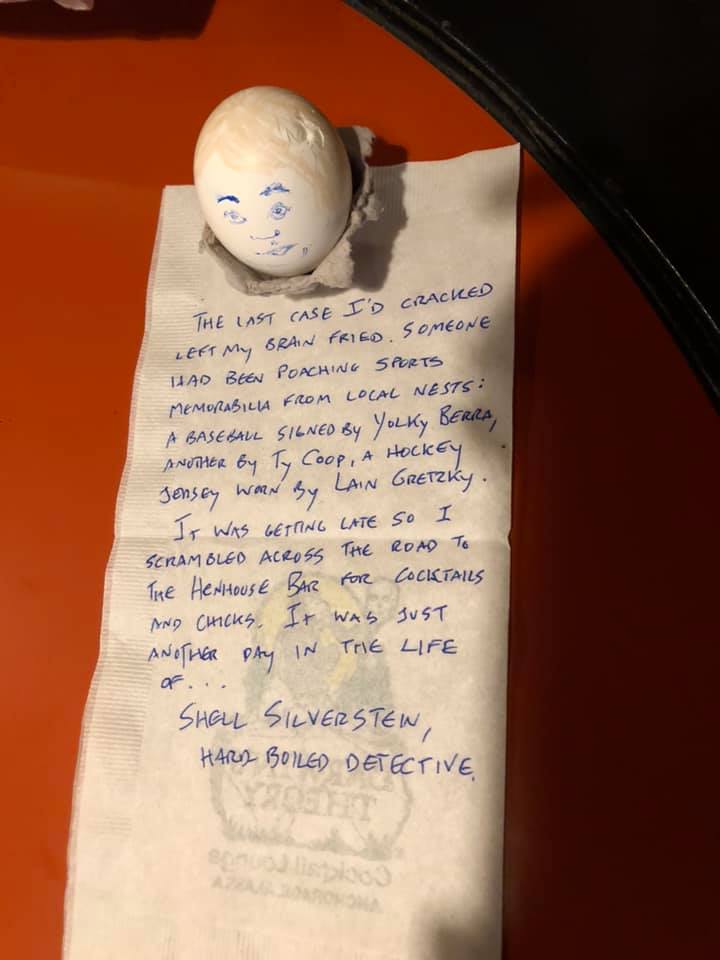 THE LAST CASE I'D CRACKED
LEFT MY BRAIN FRIED. SOMEONE
HAD BEEN POACHING SPORTS
MEMORABILIA FROM LOCAL NESTS:
A BASEBALL SIGNED BY YOLKY BERRA,
ANOTHER BY TY COOP, A HOCKEY
JERSEY WORN BY LAIN GRETZKY.
IT WAS GETTING LATE SO I
SCRAMBLED ACROSS THE ROAD TO
THE HENHOUSE BAR FOR COCKTAILS
AND CHICKS. IT WAS JUST
ANOTHER DAY IN THE LIFE
OF...
SHELL SILVERSTEIN,
HARD BOILED DETECTIVE.
THEORY
Cocktail Lounge
ANCHORAGE, ALASKA